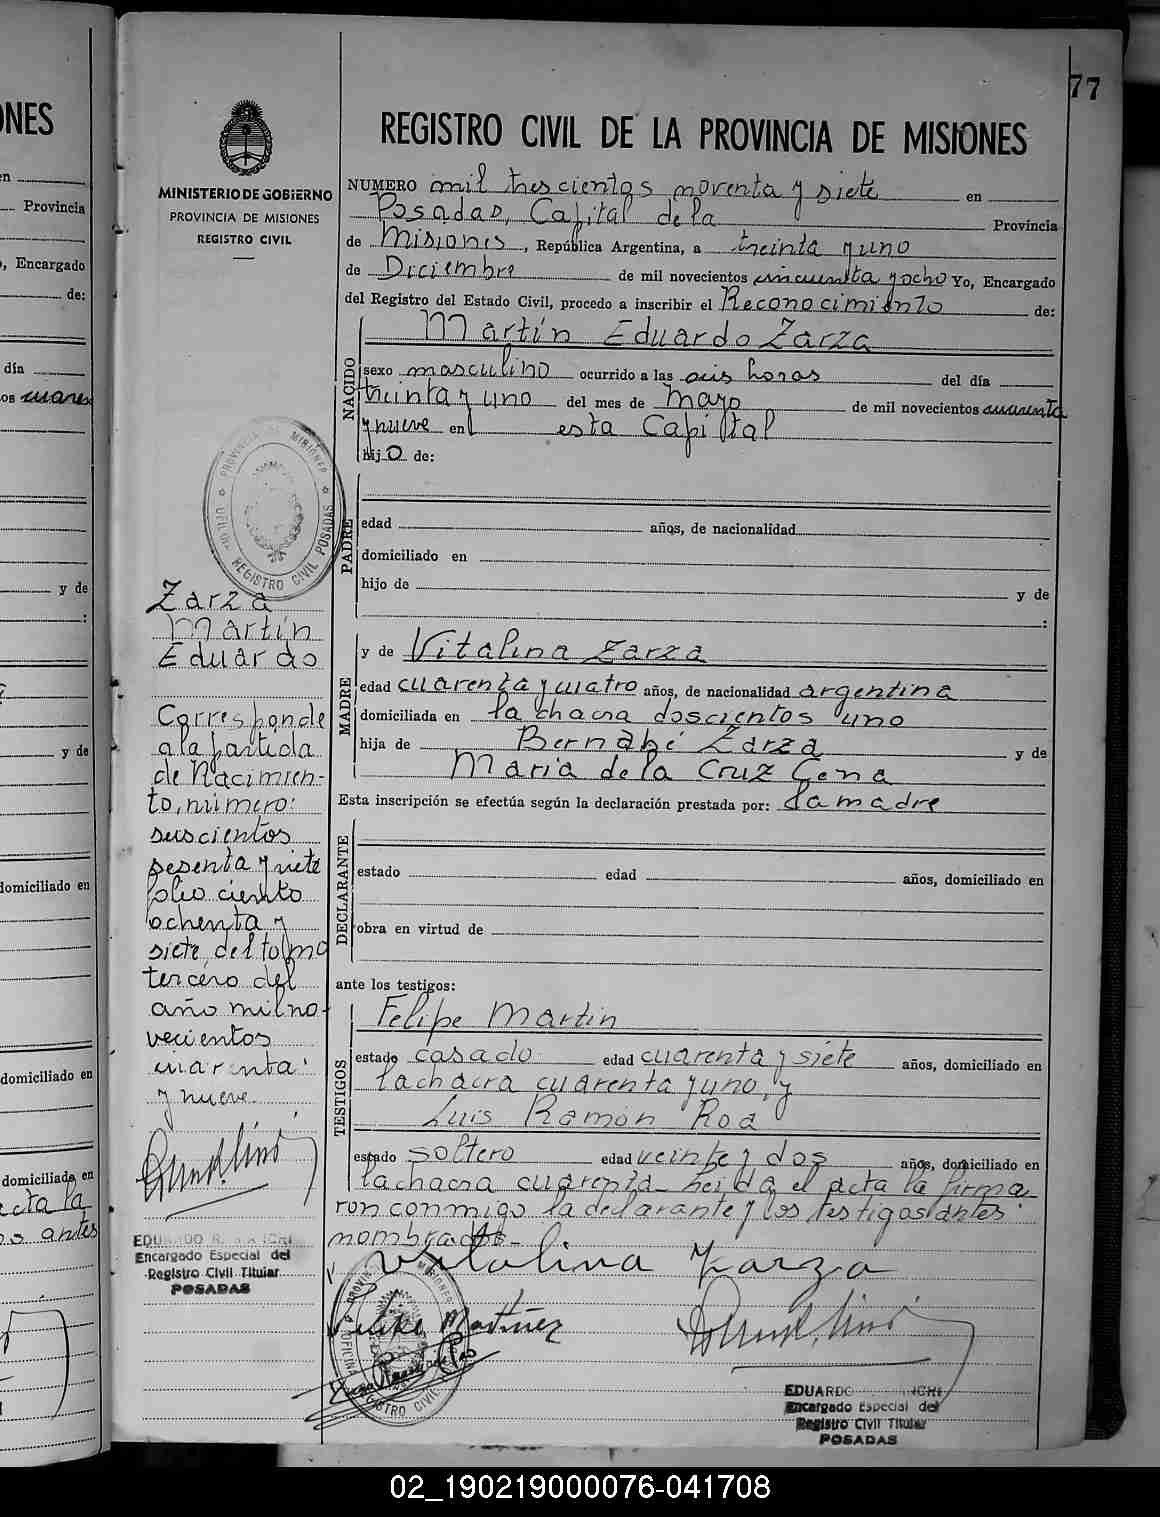 77
REGISTRO CIVIL DE LA PROVINCIA DE MISIONES
MINISTERIO DE GOBIERNO
PROVINCIA DE MISIONES
REGISTRO CIVIL
NUMERO mil trescientos noventa y siete en
Posadas, Capital de la Provincia
de Misiones, República Argentina, a treinta y uno
de Diciembre de mil novecientos cincuenta y ocho Yo, Encargado
del Registro del Estado Civil, procedo a inscribir el Reconocimiento de:
NACIDO
Martín Eduardo Zarza
sexo masculino ocurrido a las seis horas del día
treinta y uno del mes de Mayo de mil novecientos cuarenta
y nueve en esta Capital
hijo de:
PADRE
edad años, de nacionalidad
domiciliado en
hijo de y de
:
MADRE
y de Vitalina Zarza
edad cuarenta y cuatro años, de nacionalidad argentina
domiciliada en la chacra doscientos uno
hija de Bernabé Zarza y de
Maria de la Cruz Cena
Esta inscripción se efectúa según la declaración prestada por: la madre
DECLARANTE
estado edad años, domiciliado en
obra en virtud de
ante los testigos:
TESTIGOS
Felipe Martin
estado casado edad cuarenta y siete años, domiciliado en
la chacra cuarenta y uno, y
Luis Ramón Roa
estado soltero edad veinte y dos años, domiciliado en
la chacra cuarenta leída el acta la firma
ron conmigo la declarante y los testigos antes
nombrados
Vitalina Zarza
Felipe Martínez
EDUARDO
Encargado Especial del
Registro Civil Titular
POSADAS
Zarza
Martín
Eduardo
Corresponde
a la partida
de Nacimien-
to, número:
seiscientos
sesenta y siete
folio ciento
ochenta y
siete, del tomo
tercero del
año mil no-
vecientos
cuarenta
y nueve.
EDUARDO
Encargado Especial del
Registro Civil Titular
POSADAS
PROVINCIA DE MISIONES
OFICINA REGISTRO CIVIL POSADAS
ONES
en
Provincia
, Encargado
de:
día
os cuaren
y de
:
y de
domiciliado en
domiciliado en
domiciliado en
acta la
o antes
02_190219000076-041708